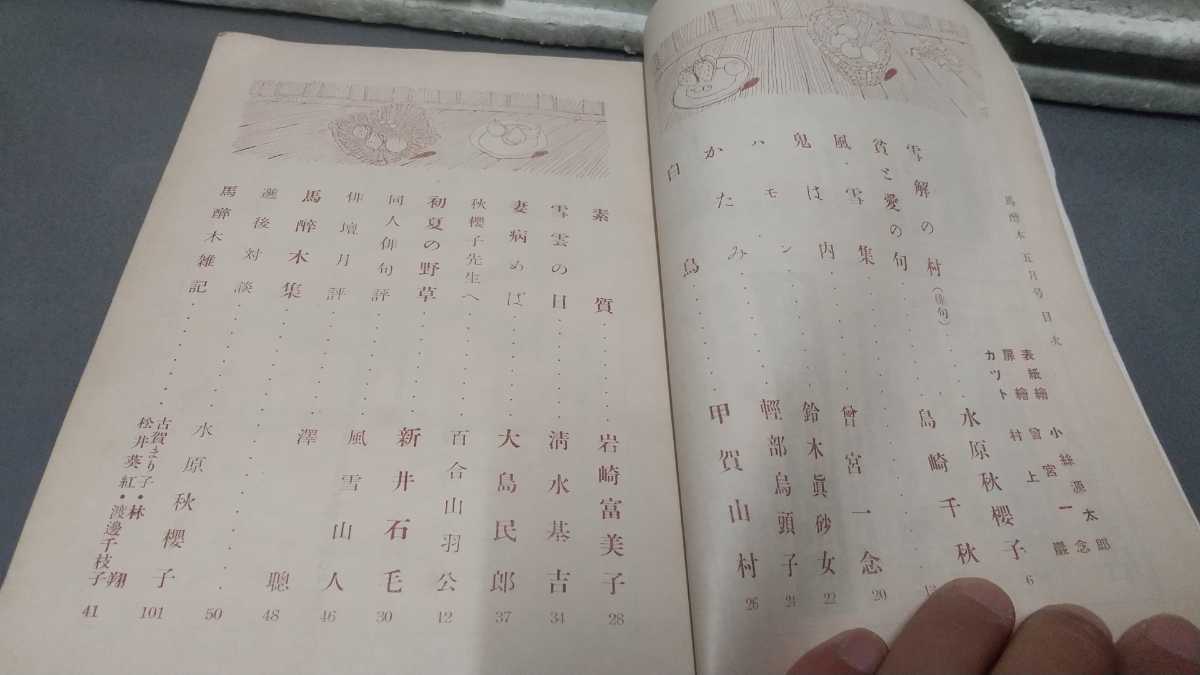 馬醉木 五月号 目次
表紙繪 小絲源太郎
扉繪 曾宮一念
カット 村上巖
雪解の村(俳句) 水原秋櫻子 6
貧と愛の句 島崎千秋
風雪集 曾宮一念 20
鬼は内 鈴木眞砂女 22
ハモン 輕部烏頭子 24
かたみ
白鳥 甲賀山村 26
素質 岩崎富美子 28
雪雲の日 淸水基吉 34
妻病めば 大島民郎 37
秋櫻子先生へ 百合山羽公 42
初夏の野草 新井石毛 30
同人俳句評 風雪山人 46
俳壇月評 澤聰 48
馬醉木集 50
選後對談 水原秋櫻子 101
馬醉木雜記 古賀まり子・林翔 松井葵紅・渡邊千枝子 41